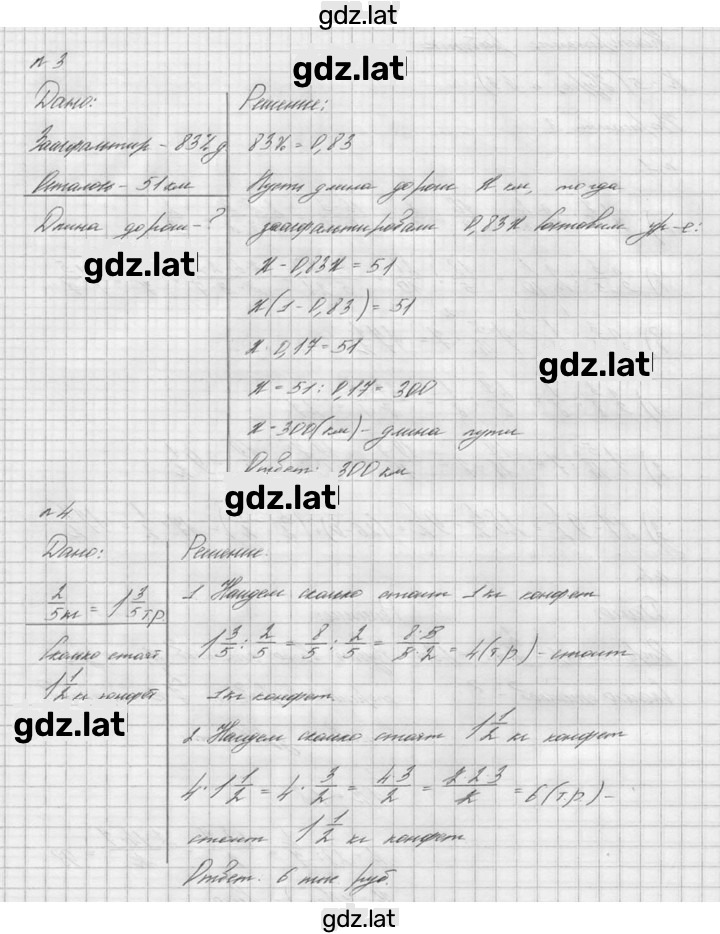 gdz.lat
n 3
gdz.lat
Дано:
Заасфальтир - 83% д
Осталось - 51 км
Длина дороги - ?
gdz.lat
Решение:
83% = 0,83
Пусть длина дороги x км, тогда
заасфальтировали 0,83x Составим ур-е:
x - 0,83x = 51
x(1 - 0,83) = 51
x · 0,17 = 51
gdz.lat
x = 51 : 0,17 = 300
x = 300(км) - длина пути
Ответ: 300 км
gdz.lat
n 4
Дано:
2/5 кг = 1 3/5 т.р.
Сколько стоят
1 1/2 кг конфет
gdz.lat
Решение.
1 Найдем сколько стоит 1 кг конфет
1 3/5 : 2/5 = 8/5 : 2/5 = 8·5/5·2 = 4(т.р.) - стоит
1 кг конфет.
2 Найдем сколько стоят 1 1/2 кг конфет
gdz.lat
4 · 1 1/2 = 4 · 3/2 = 4·3/2 = 2·2·3/2 = 6(т.р.) -
стоит 1 1/2 кг конфет
Ответ: 6 тыс руб.
gdz.lat